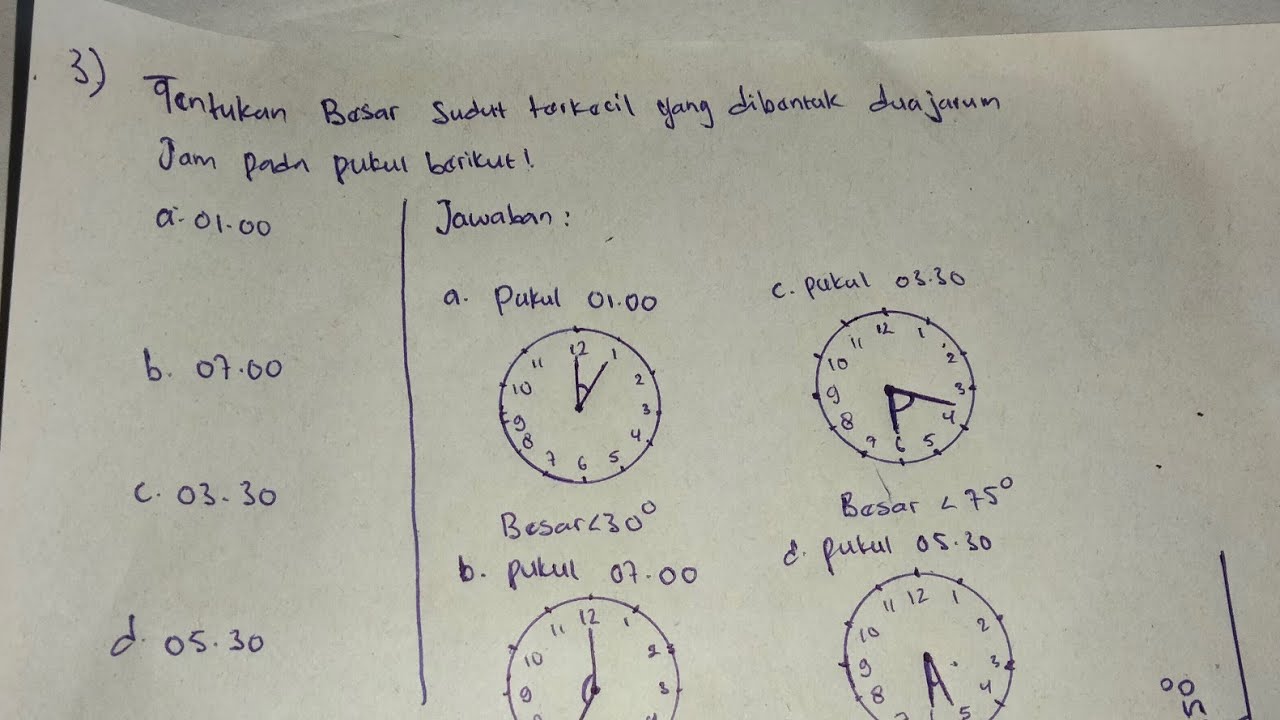 3) Tentukan Besar Sudut terkecil yang dibentuk dua jarum
Jam pada pukul berikut!
a. 01.00
b. 07.00
c. 03.30
d. 05.30
Jawaban :
a. Pukul 01.00
12 1 2 3 4 5 6 7 8 9 10 11
Besar < 30°
b. pukul 07.00
12 1 2 3 9 10 11
c. pukul 03.30
12 1 2 3 4 5 6 7 8 9 10 11
Besar < 75°
d. pukul 05.30
12 1 2 3 4 5 7 8 9 10 11